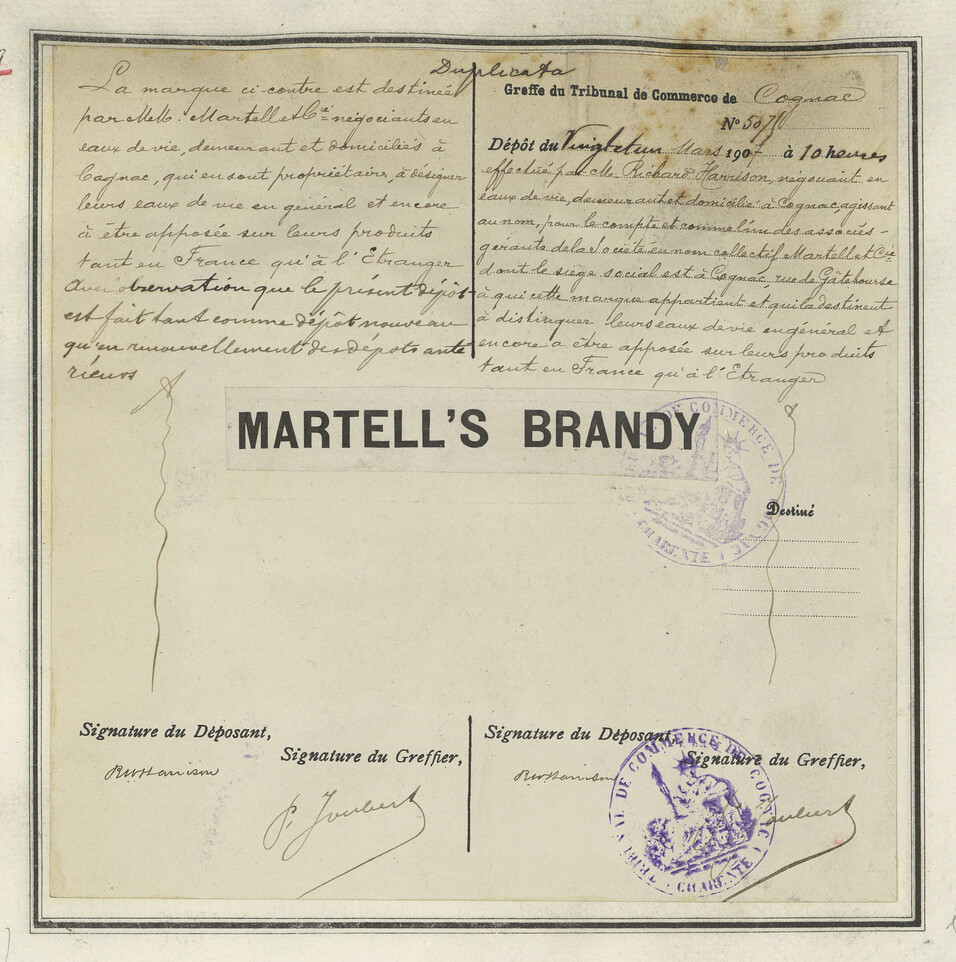 Duplicata
La marque ci-contre est destinée
par M.M. Martell & Cie négociants en
eaux de vie, demeurant et domiciliés à
Cognac, qui en sont propriétaires, à désigner
leurs eaux de vie en général et encore
à être apposée sur leurs produits
tant en France qu'à l'Etranger
avec observation que le présent dépôt
est fait tant comme dépôt nouveau
qu'en renouvellement des dépôts anté
rieurs
Greffe du Tribunal de Commerce de Cognac
No
Dépôt du Vingt et un Mars 1907 à 10 heures
effectué par M. Richard Harrison, négociant en
eaux de vie, demeurant et domicilié à Cognac, agissant
au nom, pour le compte et comme l'un des associés-
gérants de la Société en nom collectif Martell et Cie
dont le siège social est à Cognac, rue de Gâtebourse
à qui cette marque appartient et qui la destinent
à distinguer leurs eaux de vie en général et
encore a être apposée sur leurs produits
tant en France qu'à l'Etranger
MARTELL'S BRANDY
TRIBUNAL DE COMMERCE DE COGNAC
CHARENTE
Destiné
Signature du Déposant,
Signature du Greffier,
RWHarrison
P. Joubert
Signature du Déposant,
Signature du Greffier,
RWHarrison
Joubert
TRIBUNAL DE COMMERCE DE COGNAC
CHARENTE